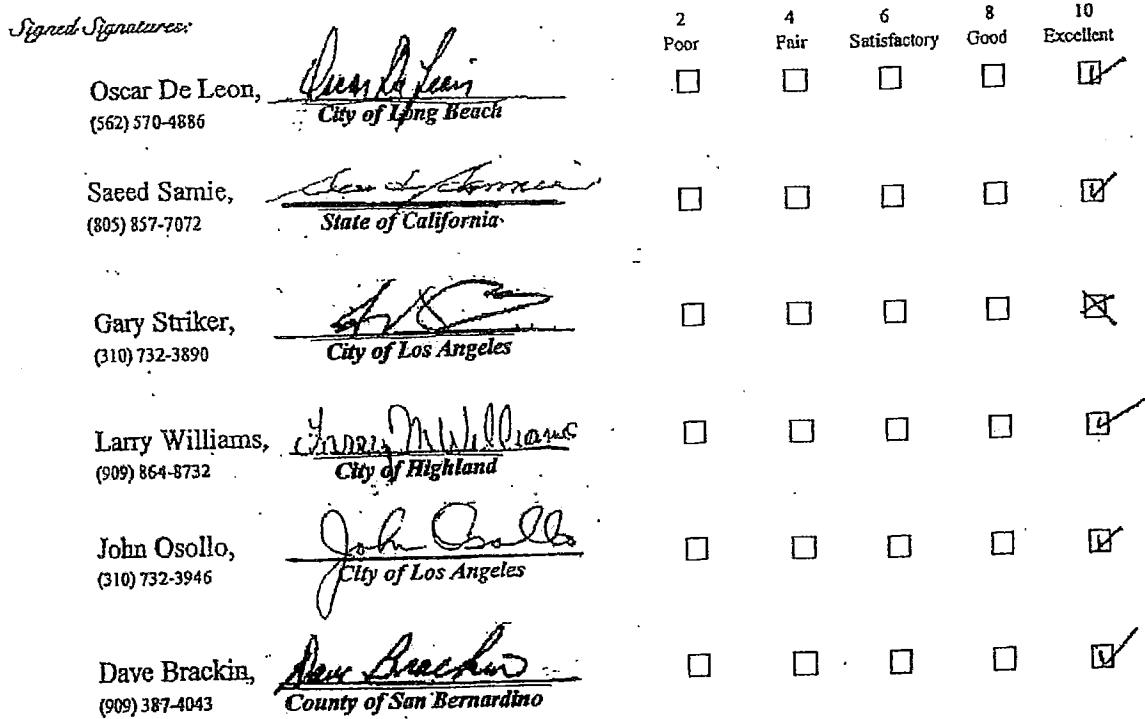 Signed Signatures:
2 4 6 8 10
Poor Fair Satisfactory Good Excellent
Oscar De Leon, Oscar De Leon
(562) 570-4886 City of Long Beach
Saeed Samie,
(805) 857-7072 State of California
Gary Striker,
(310) 732-3890 City of Los Angeles
Larry Williams, Larry M Williams
(909) 864-8732 City of Highland
John Osollo, John Osollo
(310) 732-3946 City of Los Angeles
Dave Brackin, Dave Brackin
(909) 387-4043 County of San Bernardino